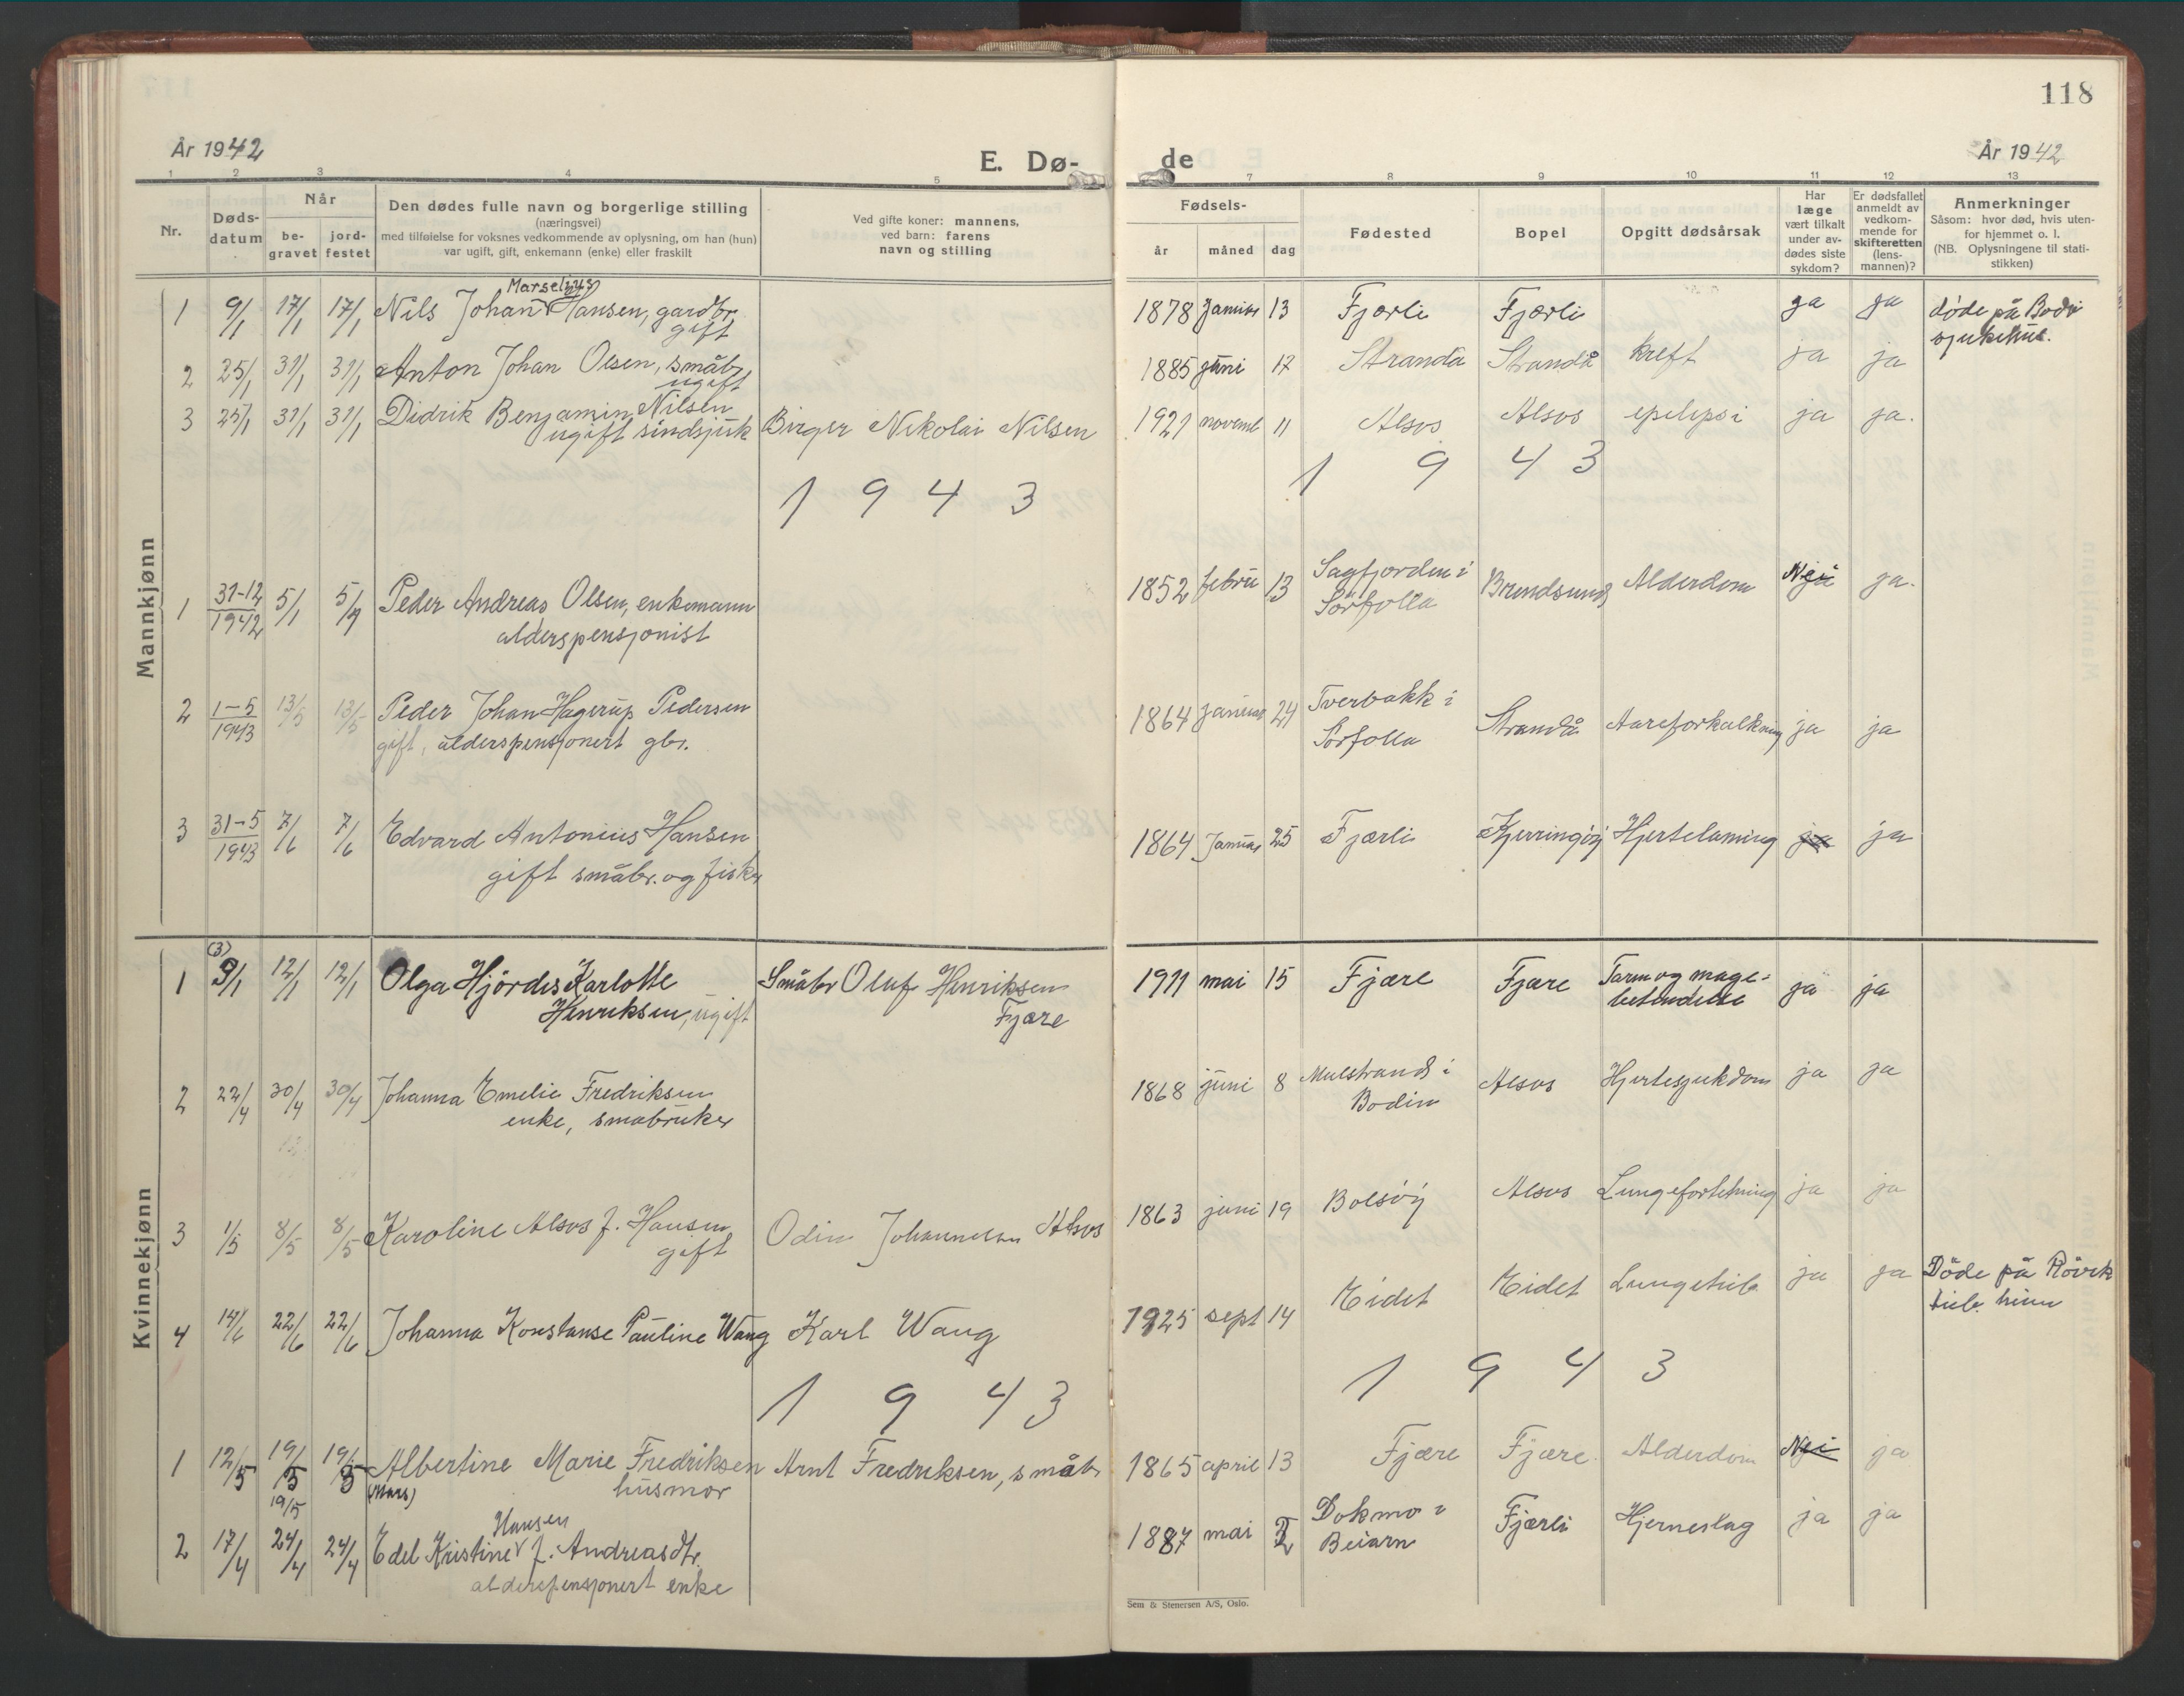 118
År 1942
E. Dø-
de
År 1942
1 2 3 4 5
7 8 9 10 11 12 13
Nr.
Døds-
datum
Når
be-
gravet
jord-
festet
Den dødes fulle navn og borgerlige stilling
(næringsvei)
med tilføielse for voksnes vedkommende av oplysning, om han (hun)
var ugift, gift, enkemann (enke) eller fraskilt
Ved gifte koner: mannens,
ved barn: farens
navn og stilling
Fødsels-
år måned dag
Fødested
Bopel
Opgitt dødsårsak
Har
læge
vært tilkalt
under av-
dødes siste
sykdom?
Er dødsfallet
anmeldt av
vedkom-
mende for
skifteretten
(lens-
mannen)?
Anmerkninger
Såsom: hvor død, hvis uten-
for hjemmet o. l.
(NB. Oplysningene til stati-
stikken)
Mannkjønn
Marselius
1 9/1 17/1 17/1 Nils Johan Hansen, gardbr. 1878 Januar 13 Fjærli Fjærli ja ja døde på Bodø
gift sjukehus.
2 25/1 31/1 31/1 Anton Johan Olsen, småbr. 1885 juni 17 Strandå Strandå kreft ja ja
ugift
3 25/1 31/1 31/1 Didrik Benjamin Nilsen Birger Nikolai Nilsen 1921 novemb 11 Alsos Alsos epilepsi ja ja.
ugift sindsjuk
1 9 4 3
1 9 4 3
1 31-12 1942 5/1 5/1 Peder Andreas Olsen, enkemann 1852 febru 13 Sagfjorden i Brendsund Alderdom Nei ja.
alderspensjonist Sørfolla
2 1-5 1943 13/5 13/5 Peder Johan Hagerup Pedersen 1864 januar 24 Tverbakk i Strandå Aareforkalkning ja ja
gift, alderspensjonert gbr. Sørfolla
3 31-5 1943 7/6 7/6 Edvard Antonius Hansen 1864 Januar 25 Fjærli Kjerringøy Hjertelaming ja ja
gift småbr. og fisker
Kvinnekjønn
(3)
1 9/1 12/1 12/1 Olga Hjørdis Karlotte Småbr Oluf Henriksen 1911 mai 15 Fjære Fjære Tarm og mage- ja ja
Henriksen, ugift Fjære betendelse
2 22/4 30/4 30/4 Johanna Emelie Fredriksen 1868 juni 8 Mulstrand i Alsos Hjertesjukdom ja ja
enke, småbruker Bodin
3 1/5 8/5 8/5 Karoline Alsos f. Hansen Odin Johannesen Alsos 1863 juni 19 Bolsøy Alsos Lungefortetning ja ja
gift
4 14/6 22/6 22/6 Johanna Konstanse Pauline Wang Karl Wang 1925 sept 14 Eidet Eidet Lungetub. ja ja Døde på Røvik
tub. heim
1 9 4 3
1 9 4 3
1 12/5 19/5 19/5 Albertine Marie Fredriksen Arnt Fredriksen, småbr 1865 april 13 Fjære Fjære. Alderdom Nei ja
(Mars) husmor
19/5
Hansen
2 17/4 24/4 24/4 Edel Kristine f. Andreasdtr. 1887 mai 2 Dokmo i Fjærli Hjerneslag ja ja
alderspensjonert enke Beiarn
Sem & Stenersen A/S, Oslo.